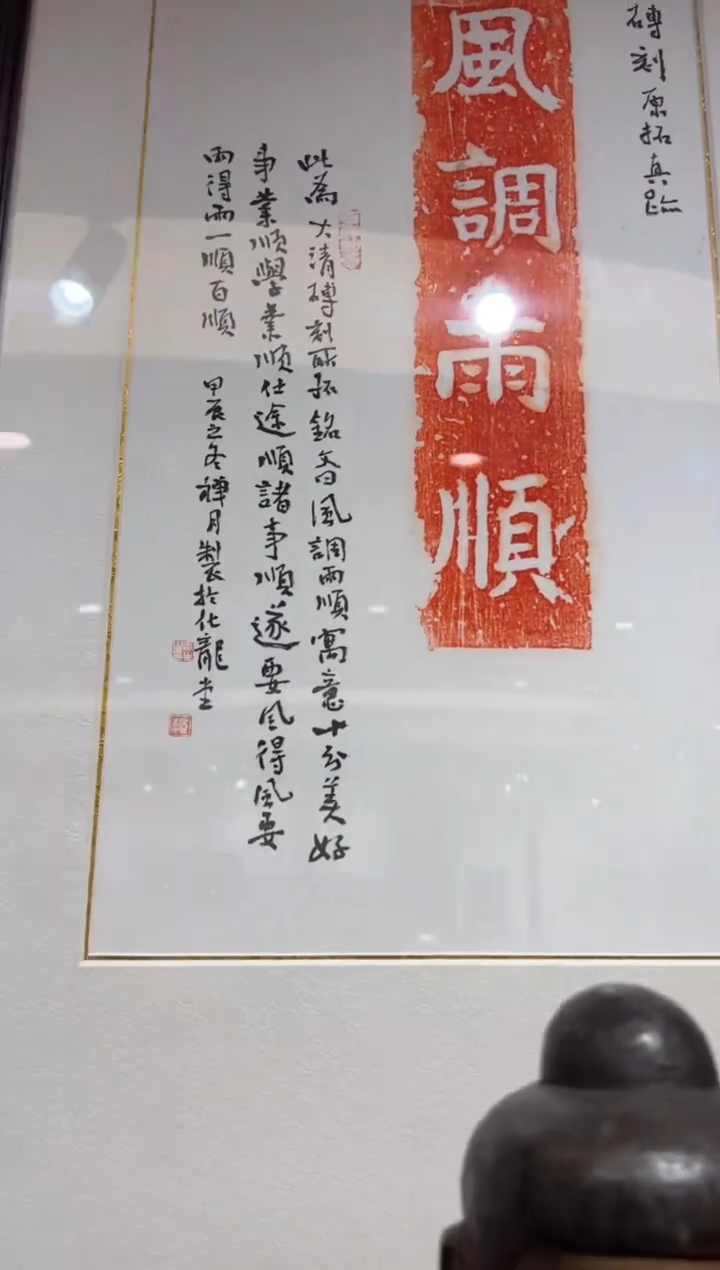 磚刻原拓真跡
風調雨順
此為大清磚刻所拓銘文曰風調雨順寓意十分美好
事業順學業順仕途順諸事順遂要風得風要
雨得雨一順百順
甲辰之冬禪月製於仕龍堂